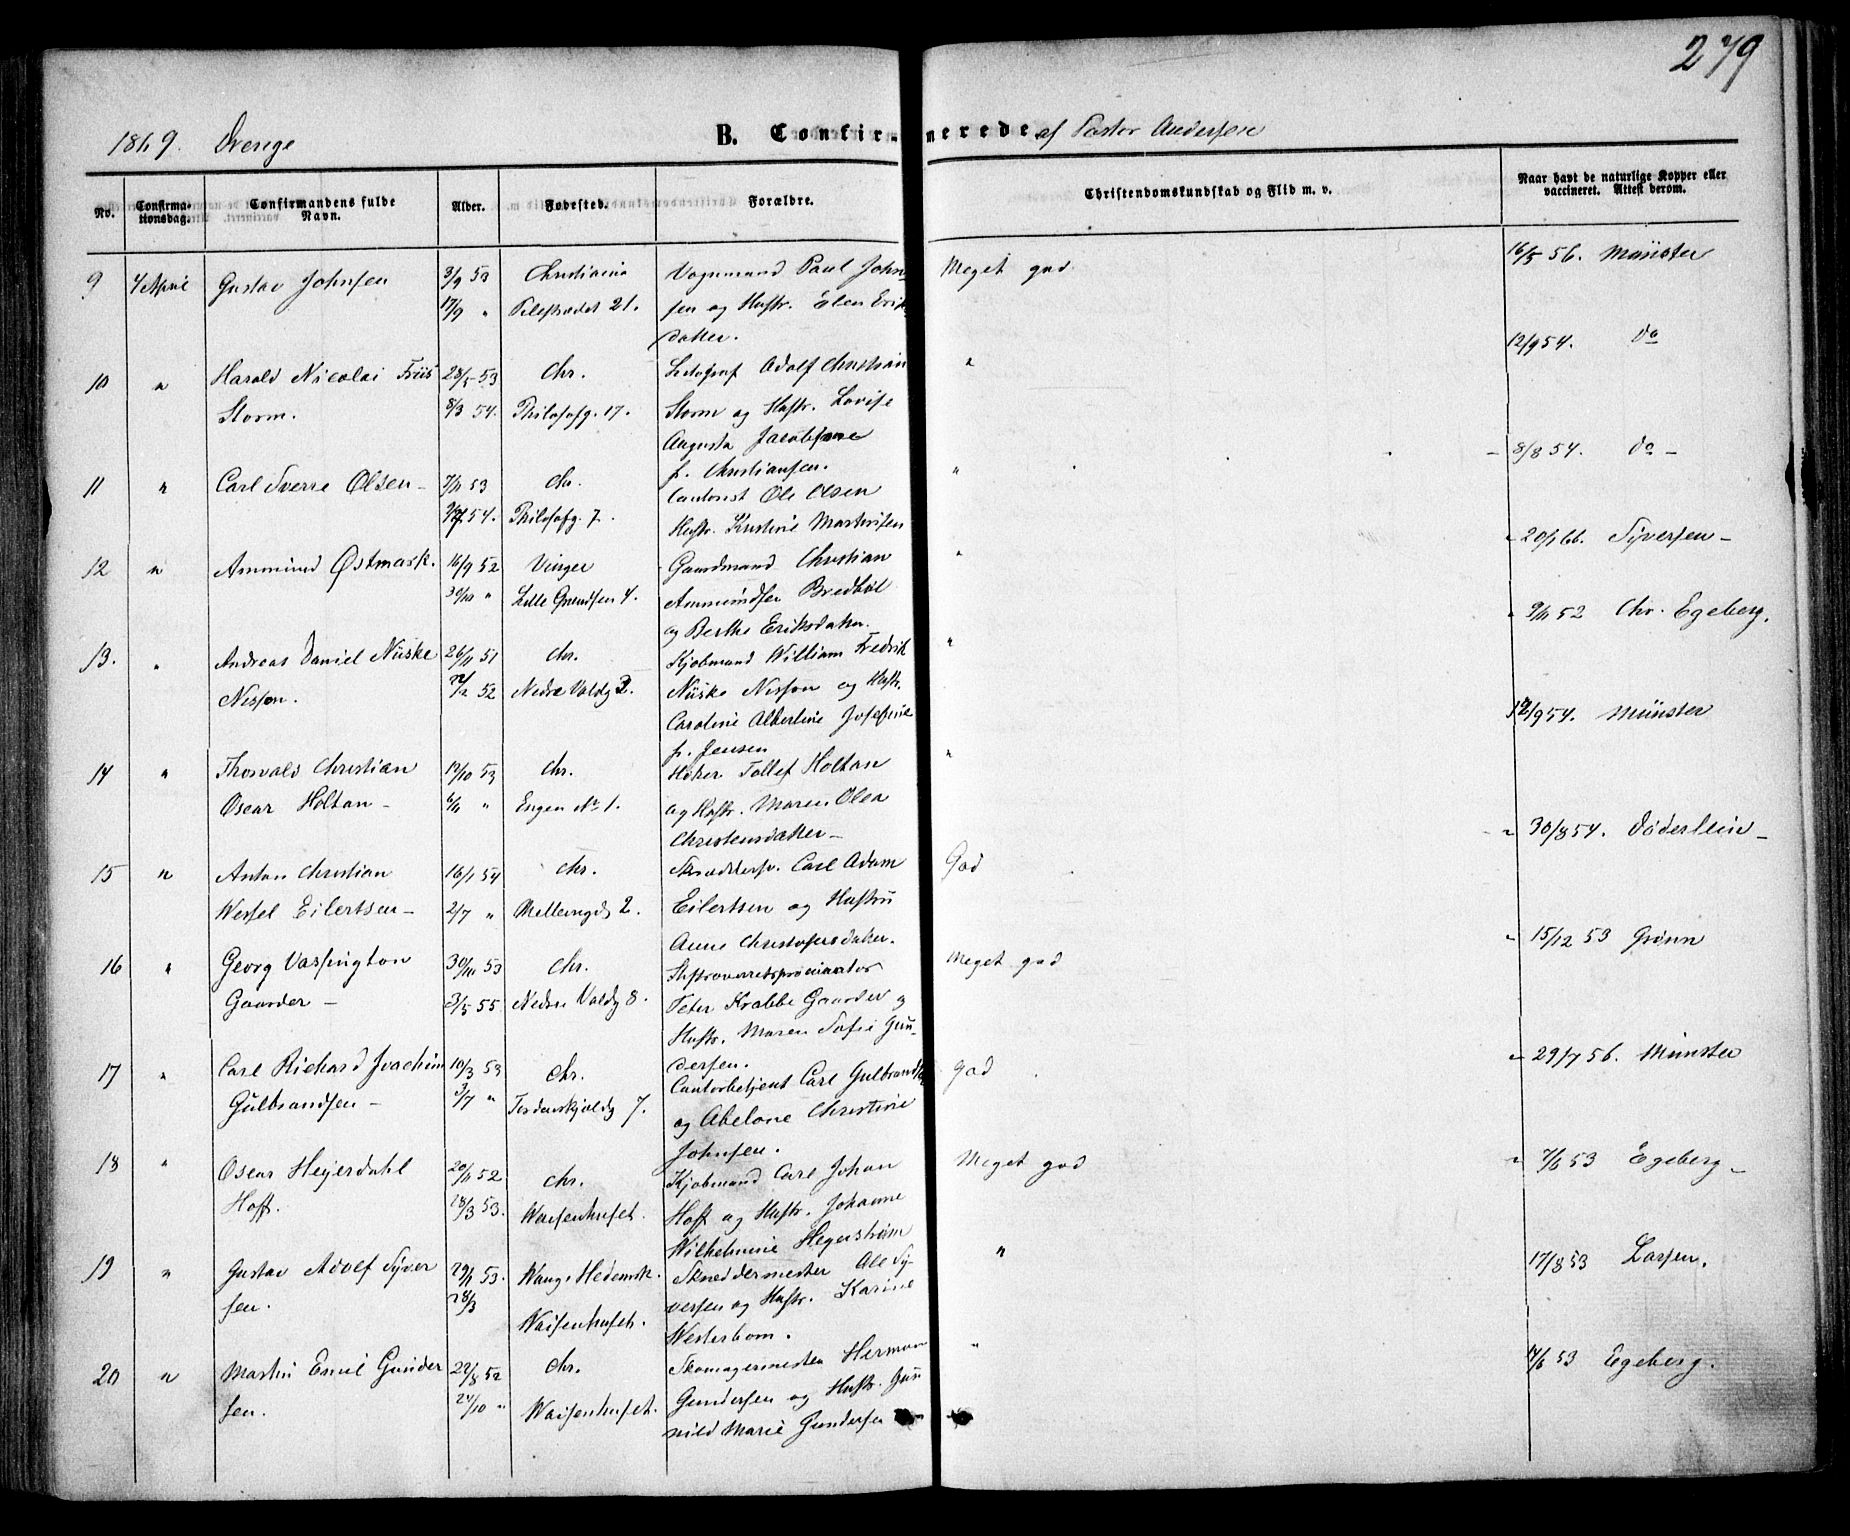 279
1869. Drenge
B. Confirmerede af Pastor Andersen
No.
Confirma-
tionsdag.
Confirmandens fulde
Navn.
Alder.
Fødested.
Forældre.
Christendomskundskab og Flid m. v.
Naar havt de naturlige Kopper eller
vaccineret. Attest derom.
9 4 April Gustav Johnsen 3/9 53 Christiania Vognmand Paul John- Meget god 16/5 56. Münster
17/9 " Pilestrædet 21. sen og Hustr. Elen Erik
datter.
10 " Harald Nicolai Friis 28/5 53 Chr. Litograf Adolf Christian " 12/9 54. do
Storm. 8/3 54. Philosofg. 17. Storm og Hustr. Lovise
Augusta Jacobsine
f. Christiansen.
11 " Carl Sverre Olsen 7/11 53 Chr. Cantorist Ole Olsen " 8/8 54. do
54. Philosofg. 7. Hustr. Kristine Martinsen
12 " Ammund Østmark. 16/9 52 Vinger Gaardmand Christian " 20/1 66. Syversen
30/10 " Lille Grændsen 4. Ammundsen Bredbøl
og Berthe Eriksdatter.
13. " Andreas Daniel Niiske 26/11 51 Chr. Kjøbmand William Fredrik " 9/11 52 Chr. Egeberg.
Nisson. 22/2 52 Nedre Voldg 2. Niiske Nisson og Hustr.
Caroline Albertine Josefine
f. Jensen
14 " Thorvald Christian 19/10 53 Chr. Høker Tollef Holtan " 12/9 54. Münster
Oscar Holtan 6/11 " Engen No 1. og Hustr. Maren Olea
Christensdatter
15 " Anton Christian 16/1 54 Chr. Skræddersv. Carl Adam God " 30/8 54. Døderlein
Wessel Eilertsen 2/7 " Mellemgd. 2. Eilertsen og Hustru
Anne Christofersdatter.
16 " Georg Vassington 30/10 53 Chr. Stiftsoverretsprocurator Meget god " 15/12 53 Grønn
Gaarder 3/5 55 Nedre Voldg 8. Peter Krabbe Gaarder og
Hustr. Maren Sofie Gun-
dersen.
17 " Carl Richard Joachim 10/3 53 Chr. Cantorbetjent Carl Gulbrandsen God " 29/7 56. Münster
Gulbrandsen 3/7 " Tordenskjoldg 7. og Abelone Christine
Johnsen.
18 " Oscar Heyerdahl 20/11 52 Chr. Kjøbmand Carl Johan Meget god " 7/6 53 Egeberg
Hoff. 28/3 53. Waisenhuset. Hoff og Hustr. Johanne
Wilhelmine Hegerstrøm
19 " Gustav Adolf Syver 29/1 53. Wang i Hedemk. Skræddermester Ole Sy- " 17/8 53 Larsen.
sen. 28/3 Waisenhuset. versen og Hustr. Karine
Westerbom.
20 " Martin Emil Gunder 22/8 52 Chr. Skomagermester Herman " 14/6 53 Egeberg.
sen. 24/10 " Waisenhuset. Gundersen og Hustr. Gun
nild Marie Gundersen